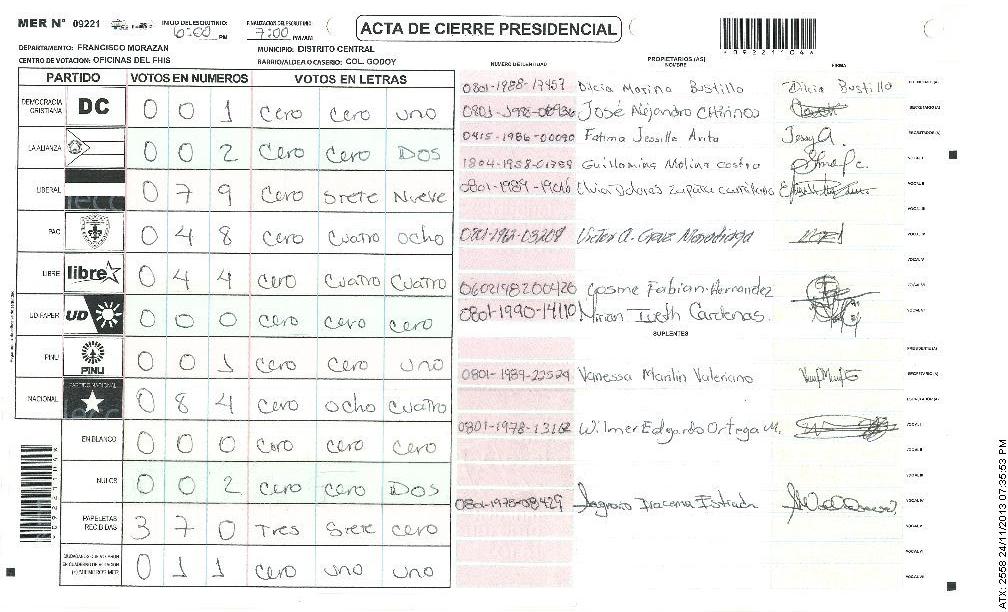 MER N° 09221
INICIO DEL ESCRUTINIO: 6:00 PM
FINALIZACION DEL ESCRUTINIO: 7:00 PM/AM
ACTA DE CIERRE PRESIDENCIAL
DEPARTAMENTO: FRANCISCO MORAZAN
MUNICIPIO: DISTRITO CENTRAL
CENTRO DE VOTACION: OFICINAS DEL FHIS
BARRIO/ALDEA O CASERIO: COL. GODOY
PARTIDO VOTOS EN NUMEROS VOTOS EN LETRAS
DEMOCRACIA CRISTIANA DC 0 0 1 cero cero uno
LA ALIANZA 0 0 2 cero cero DOS
LIBERAL 0 7 9 cero Siete Nueve
PAC 0 4 8 cero cuatro ocho
LIBRE libre 0 4 4 cero cuatro cuatro
UD FAPER UD 0 0 0 cero cero cero
PINU PINU 0 0 1 cero cero uno
NACIONAL PARTIDO NACIONAL 0 8 4 cero ocho cuatro
EN BLANCO 0 0 0 cero cero cero
NULOS 0 0 2 cero cero DOS
PAPELETAS RECIBIDAS 3 7 0 Tres Siete cero
0 1 1 cero uno uno
NUMERO DE IDENTIDAD PROPIETARIOS (AS) NOMBRE FIRMA
0801-1988-17457 Dilcia Marina Bustillo Dilcia Bustillo
José Alejandro Chirinos SECRETARIO (A)
0415-1986-00090 Fatima Jessille Anita Jessy A.
1804-1958-01759 Guillermina Molina Castro VOCAL I
VOCAL II
VOCAL III
Victor A. Cruz VOCAL IV
VOCAL V
0602198200426 Cosme Fabian Hernandez VOCAL VI
0801-1990-14110 Cardenas. VOCAL VII
SUPLENTES
PRESIDENTE (A)
0801-1989-22524 Vanessa Marilin Valeriano SECRETARIO (A)
0801-1978-13162 Wilmer Edgardo Ortega M. VOCAL I
VOCAL II
VOCAL III
0801-1978-08429 VOCAL IV
VOCAL V
VOCAL VI
VOCAL VII
ATX: 2558 24/11/2013 07:35:53 PM